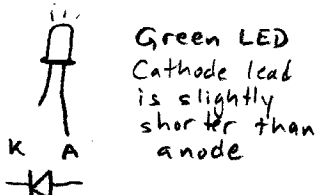 Green LED
Cathode lead
is slightly
shorter than
anode
K A